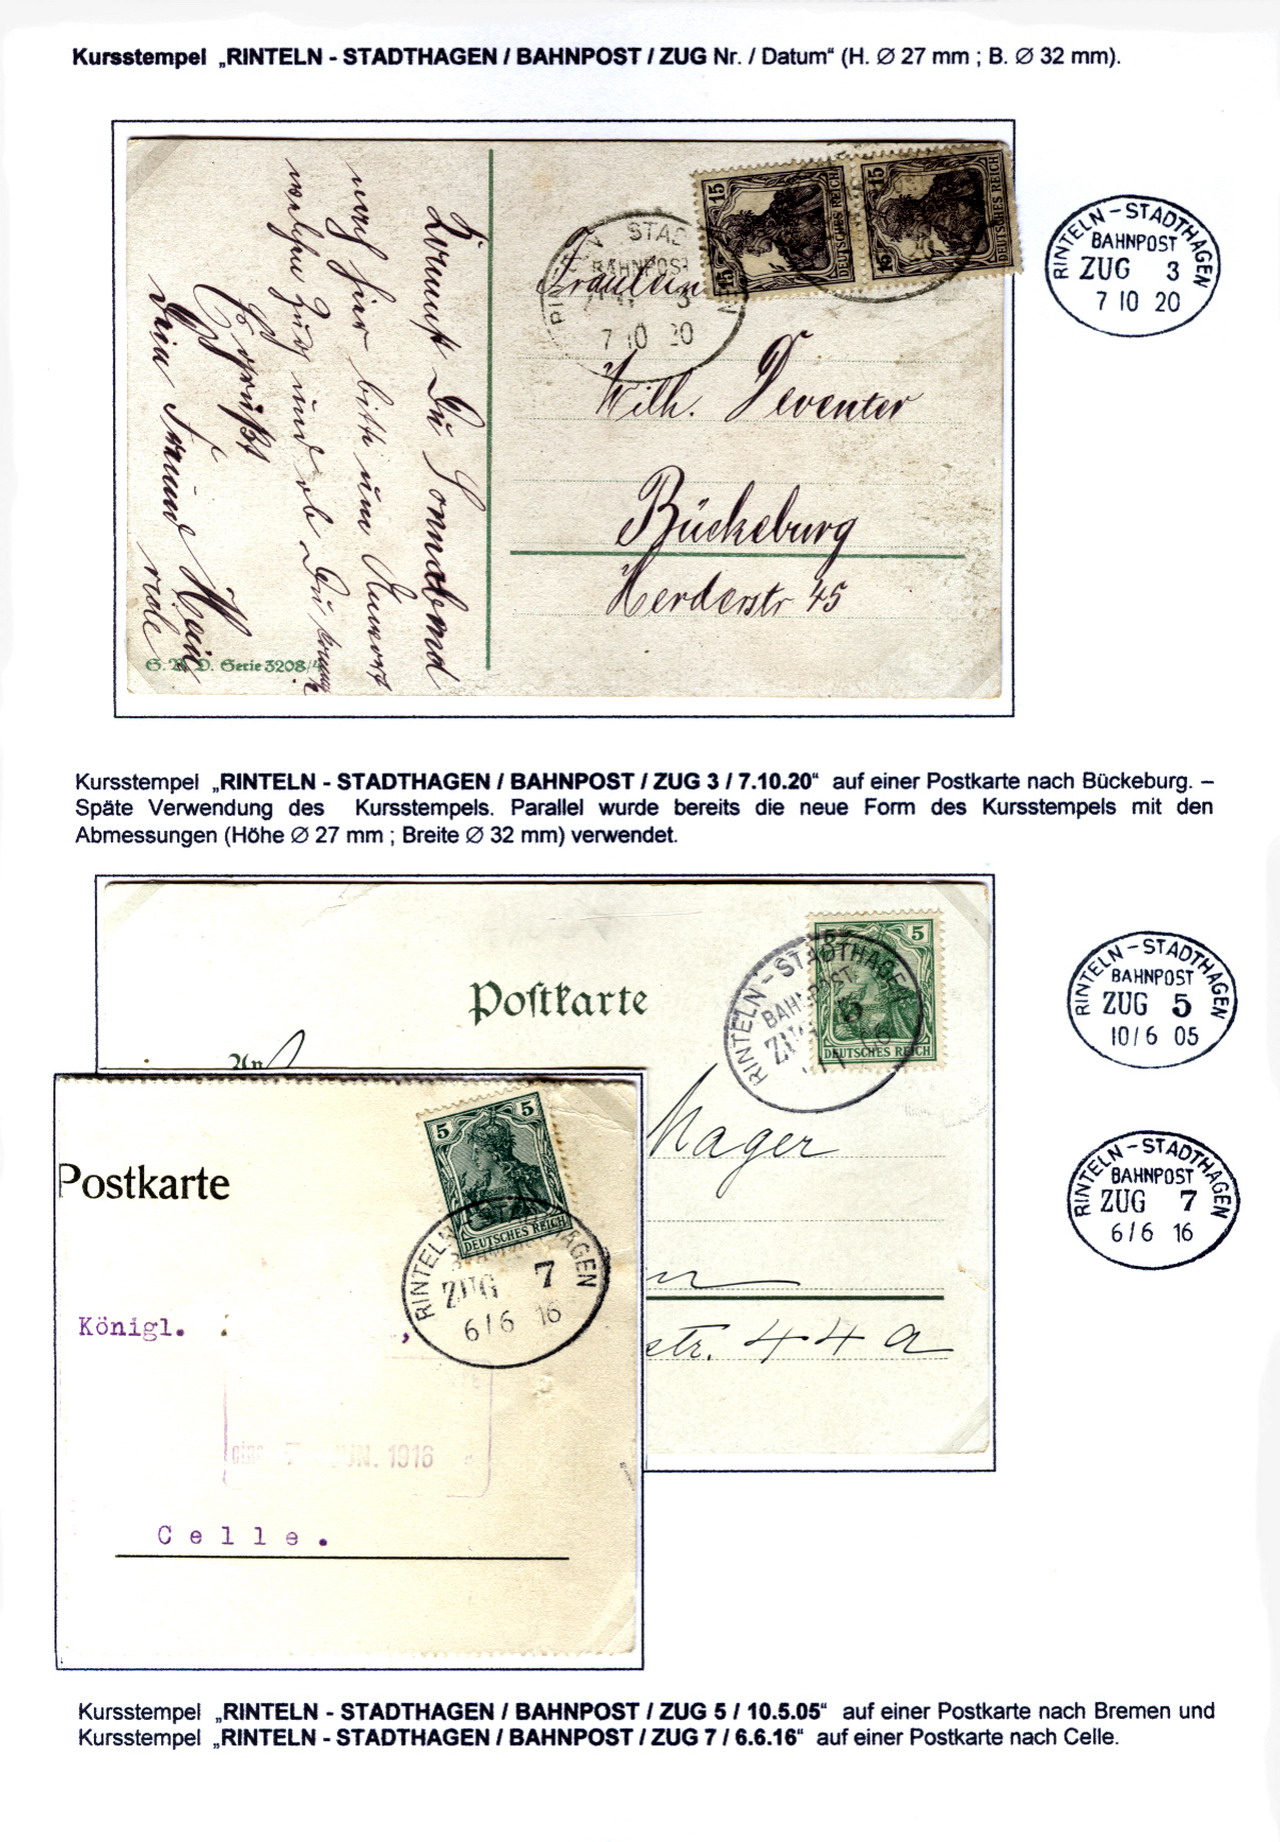 Kursstempel „RINTELN - STADTHAGEN / BAHNPOST / ZUG Nr. / Datum“ (H. ∅ 27 mm ; B. ∅ 32 mm).
Kommst Du Sonnabend
noch hier bitte um Antwort
welchen Zug und ob Du kommst
Es grüßt
Dein Freund Hein
S. D. Serie 3208/4
RINTELN STAD
BAHNPOST
3
7 10 20
15 15
DEUTSCHES REICH
15 15
DEUTSCHES REICH
Fräulein
Wilh. Deventer
Bückeburg
Herderstr 45
RINTELN – STADTHAGEN
BAHNPOST
ZUG 3
7 10 20
Kursstempel „RINTELN - STADTHAGEN / BAHNPOST / ZUG 3 / 7.10.20“ auf einer Postkarte nach Bückeburg. –
Späte Verwendung des Kursstempels. Parallel wurde bereits die neue Form des Kursstempels mit den
Abmessungen (Höhe ∅ 27 mm ; Breite ∅ 32 mm) verwendet.
Postkarte
An
5 5
DEUTSCHES REICH
RINTELN – STADTHAGEN
BAHNPOST
ZUG 5
Mager
str. 44a
RINTELN – STADTHAGEN
BAHNPOST
ZUG 5
10/6 05
RINTELN – STADTHAGEN
BAHNPOST
ZUG 7
6/6 16
Postkarte
5 5
DEUTSCHES REICH
RINTELN HAGEN
ZUG 7
6/6 16
Königl. ,
JUN. 1916
Celle.
Kursstempel „RINTELN - STADTHAGEN / BAHNPOST / ZUG 5 / 10.5.05“ auf einer Postkarte nach Bremen und
Kursstempel „RINTELN - STADTHAGEN / BAHNPOST / ZUG 7 / 6.6.16“ auf einer Postkarte nach Celle.